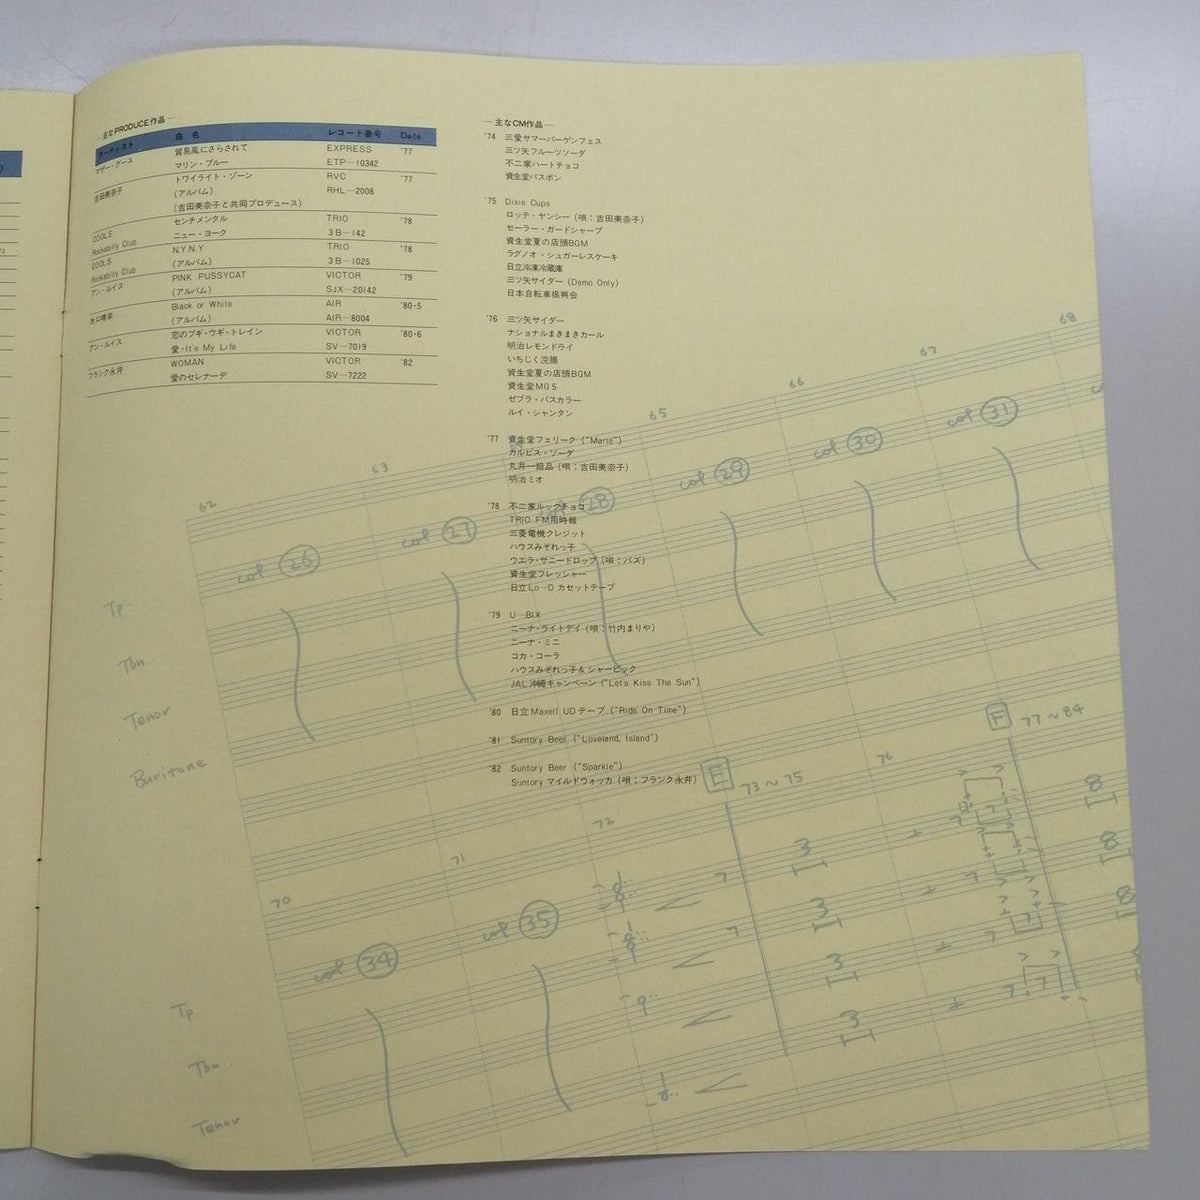 —主なPRODUCE作品—
アーティスト 曲 名 レコード番号 Date
マザー・グース 貿易風にさらされて EXPRESS '77
マリン・ブルー ETP—10342
吉田美奈子 トワイライト・ゾーン RVC '77
(アルバム) RHL—2008
(吉田美奈子と共同プロデュース)
COOLS センチメンタル TRIO '78
Rockabilly Club ニュー・ヨーク 3B—142
COOLS N.Y.N.Y TRIO '78
Rockabilly Club (アルバム) 3B—1025
アン・ルイス PINK PUSSYCAT VICTOR '79
(アルバム) SJX—20142
Black or White AIR '80・5
(アルバム) AIR—8004
アン・ルイス 恋のブギ・ウギ・トレイン VICTOR '80・6
愛・It's My Life SV—7019
フランク永井 WOMAN VICTOR '82
愛のセレナーデ SV—7222
—主なCM作品—
'74 三愛サマーバーゲンフェス
三ツ矢フルーツソーダ
不二家ハートチョコ
資生堂バスボン
'75 Dixie Cups
ロッテ・ヤンシー(唄：吉田美奈子)
セーラー・ガードシャープ
資生堂夏の店頭BGM
ラグノオ・シュガーレスケーキ
日立冷凍冷蔵庫
三ツ矢サイダー (Demo Only)
日本自転車振興会
'76 三ツ矢サイダー
ナショナルまきまきカール
明治レモンドライ
いちじく浣腸
資生堂夏の店頭BGM
資生堂MG5
ゼブラ・パスカラー
ルイ・シャンタン
'77 資生堂フェリーク ("Marie")
カルピス・ソーダ
丸井一級品(唄：吉田美奈子)
明治ミオ
'78 不二家ルックチョコ
TRIO FM用時報
三菱電機クレジット
ハウスみぞれっ子
ウエラ・サニードロップ(唄：バズ)
資生堂フレッシャー
日立Lo—Dカセットテープ
'79 U—BIX
ニーナ・ライトデイ(唄：竹内まりや)
ニーナ・ミニ
コカ・コーラ
ハウスみぞれっ子&シャービック
JAL沖縄キャンペーン ("Let's Kiss The Sun")
'80 日立Maxell UDテープ ("Ride On Time")
'81 Suntory Beer ("Loveland, Island")
'82 Suntory Beer ("Sparkle")
Suntory マイルドウォッカ(唄：フランク永井)
62 63 65 66 67 68
col 26 col 27 col 28 col 29 col 30 col 31
Tp.
Tbn.
Tenor
Baritone
70 71 72 E 73～75 76 F 77～84
col 34 col 35
3 3 3 3
8 8 8
Tp
Tbn.
Tenor